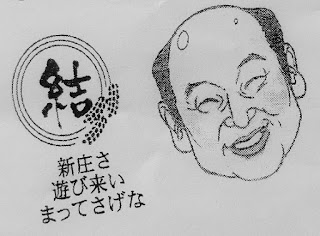 結
新庄さ
遊び来い
まってさげな